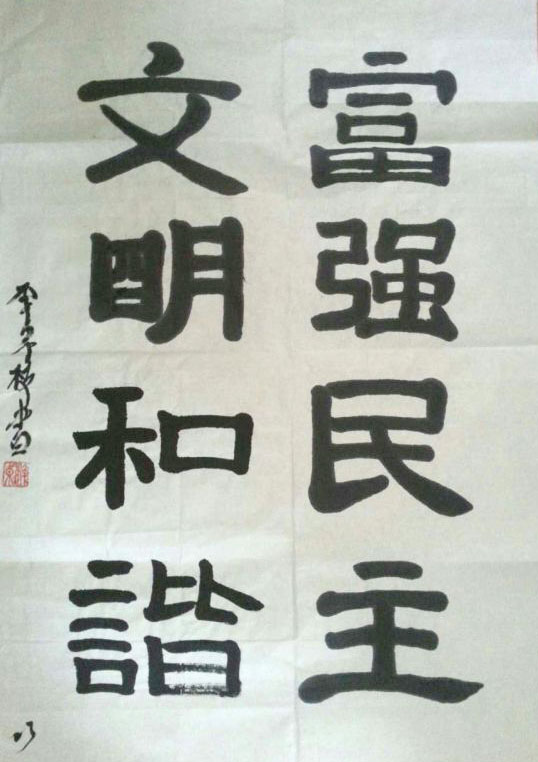 富强民主
文明和諧